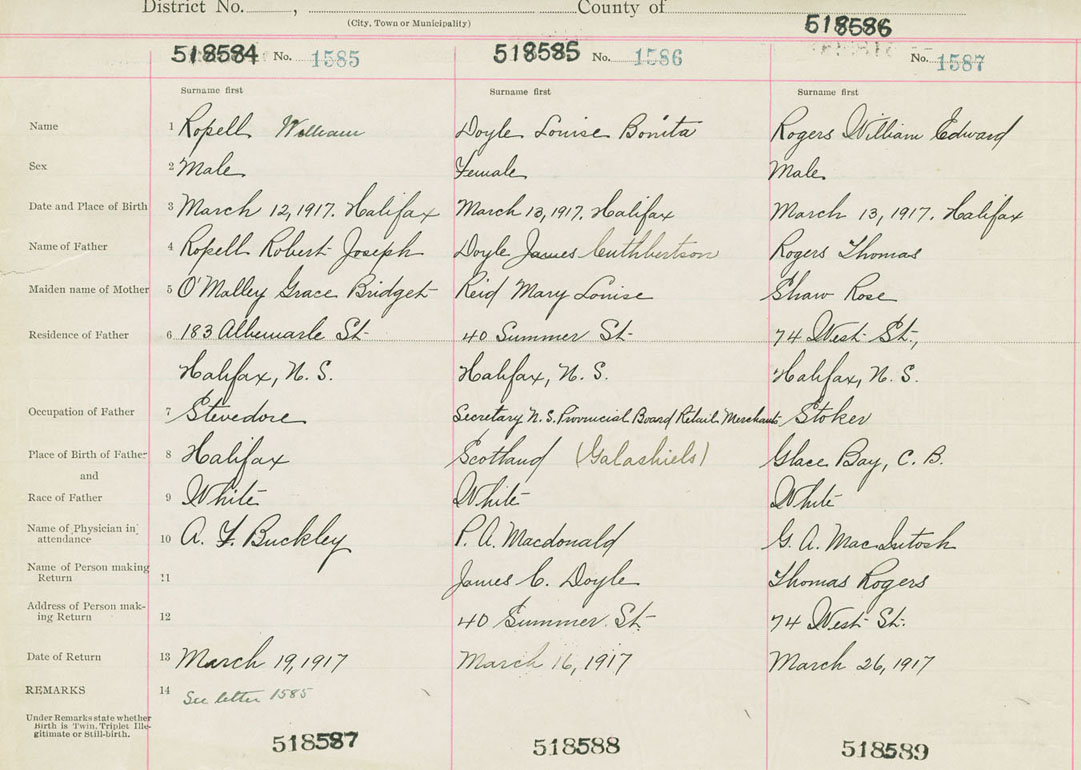 District No. , County of
(City, Town or Municipality)
518584 No. 1585 518585 No. 1586 518586 No. 1587
Surname first Surname first Surname first
Name 1 Ropell William Doyle Louise Bonita Rogers William Edward
Sex 2 Male Female Male
Date and Place of Birth 3 March 12, 1917. Halifax March 13, 1917. Halifax March 13, 1917. Halifax
Name of Father 4 Ropell Robert Joseph Doyle James Cuthbertson Rogers Thomas
Maiden name of Mother 5 O'Malley Grace Bridget Reid Mary Louise Shaw Rose
Residence of Father 6 183 Albemarle St 40 Summer St 74 West St,
Halifax, N. S. Halifax, N. S. Halifax, N. S.
Occupation of Father 7 Stevedore Secretary N. S. Provincial Board Retail Merchants Stoker
Place of Birth of Father 8 Halifax Scotland (Galashiels) Glace Bay, C. B.
and
Race of Father 9 White White White
Name of Physician in
attendance 10 A. F. Buckley P. A. Macdonald G. A. MacIntosh
Name of Person making
Return 11 James C. Doyle Thomas Rogers
Address of Person mak-
ing Return 12 40 Summer St. 74 West St.
Date of Return 13 March 19, 1917 March 16, 1917 March 26, 1917
REMARKS 14 See letter 1585
Under Remarks state whether
Birth is Twin, Triplet Ille-
gitimate or Still-birth.
518587 518588 518589